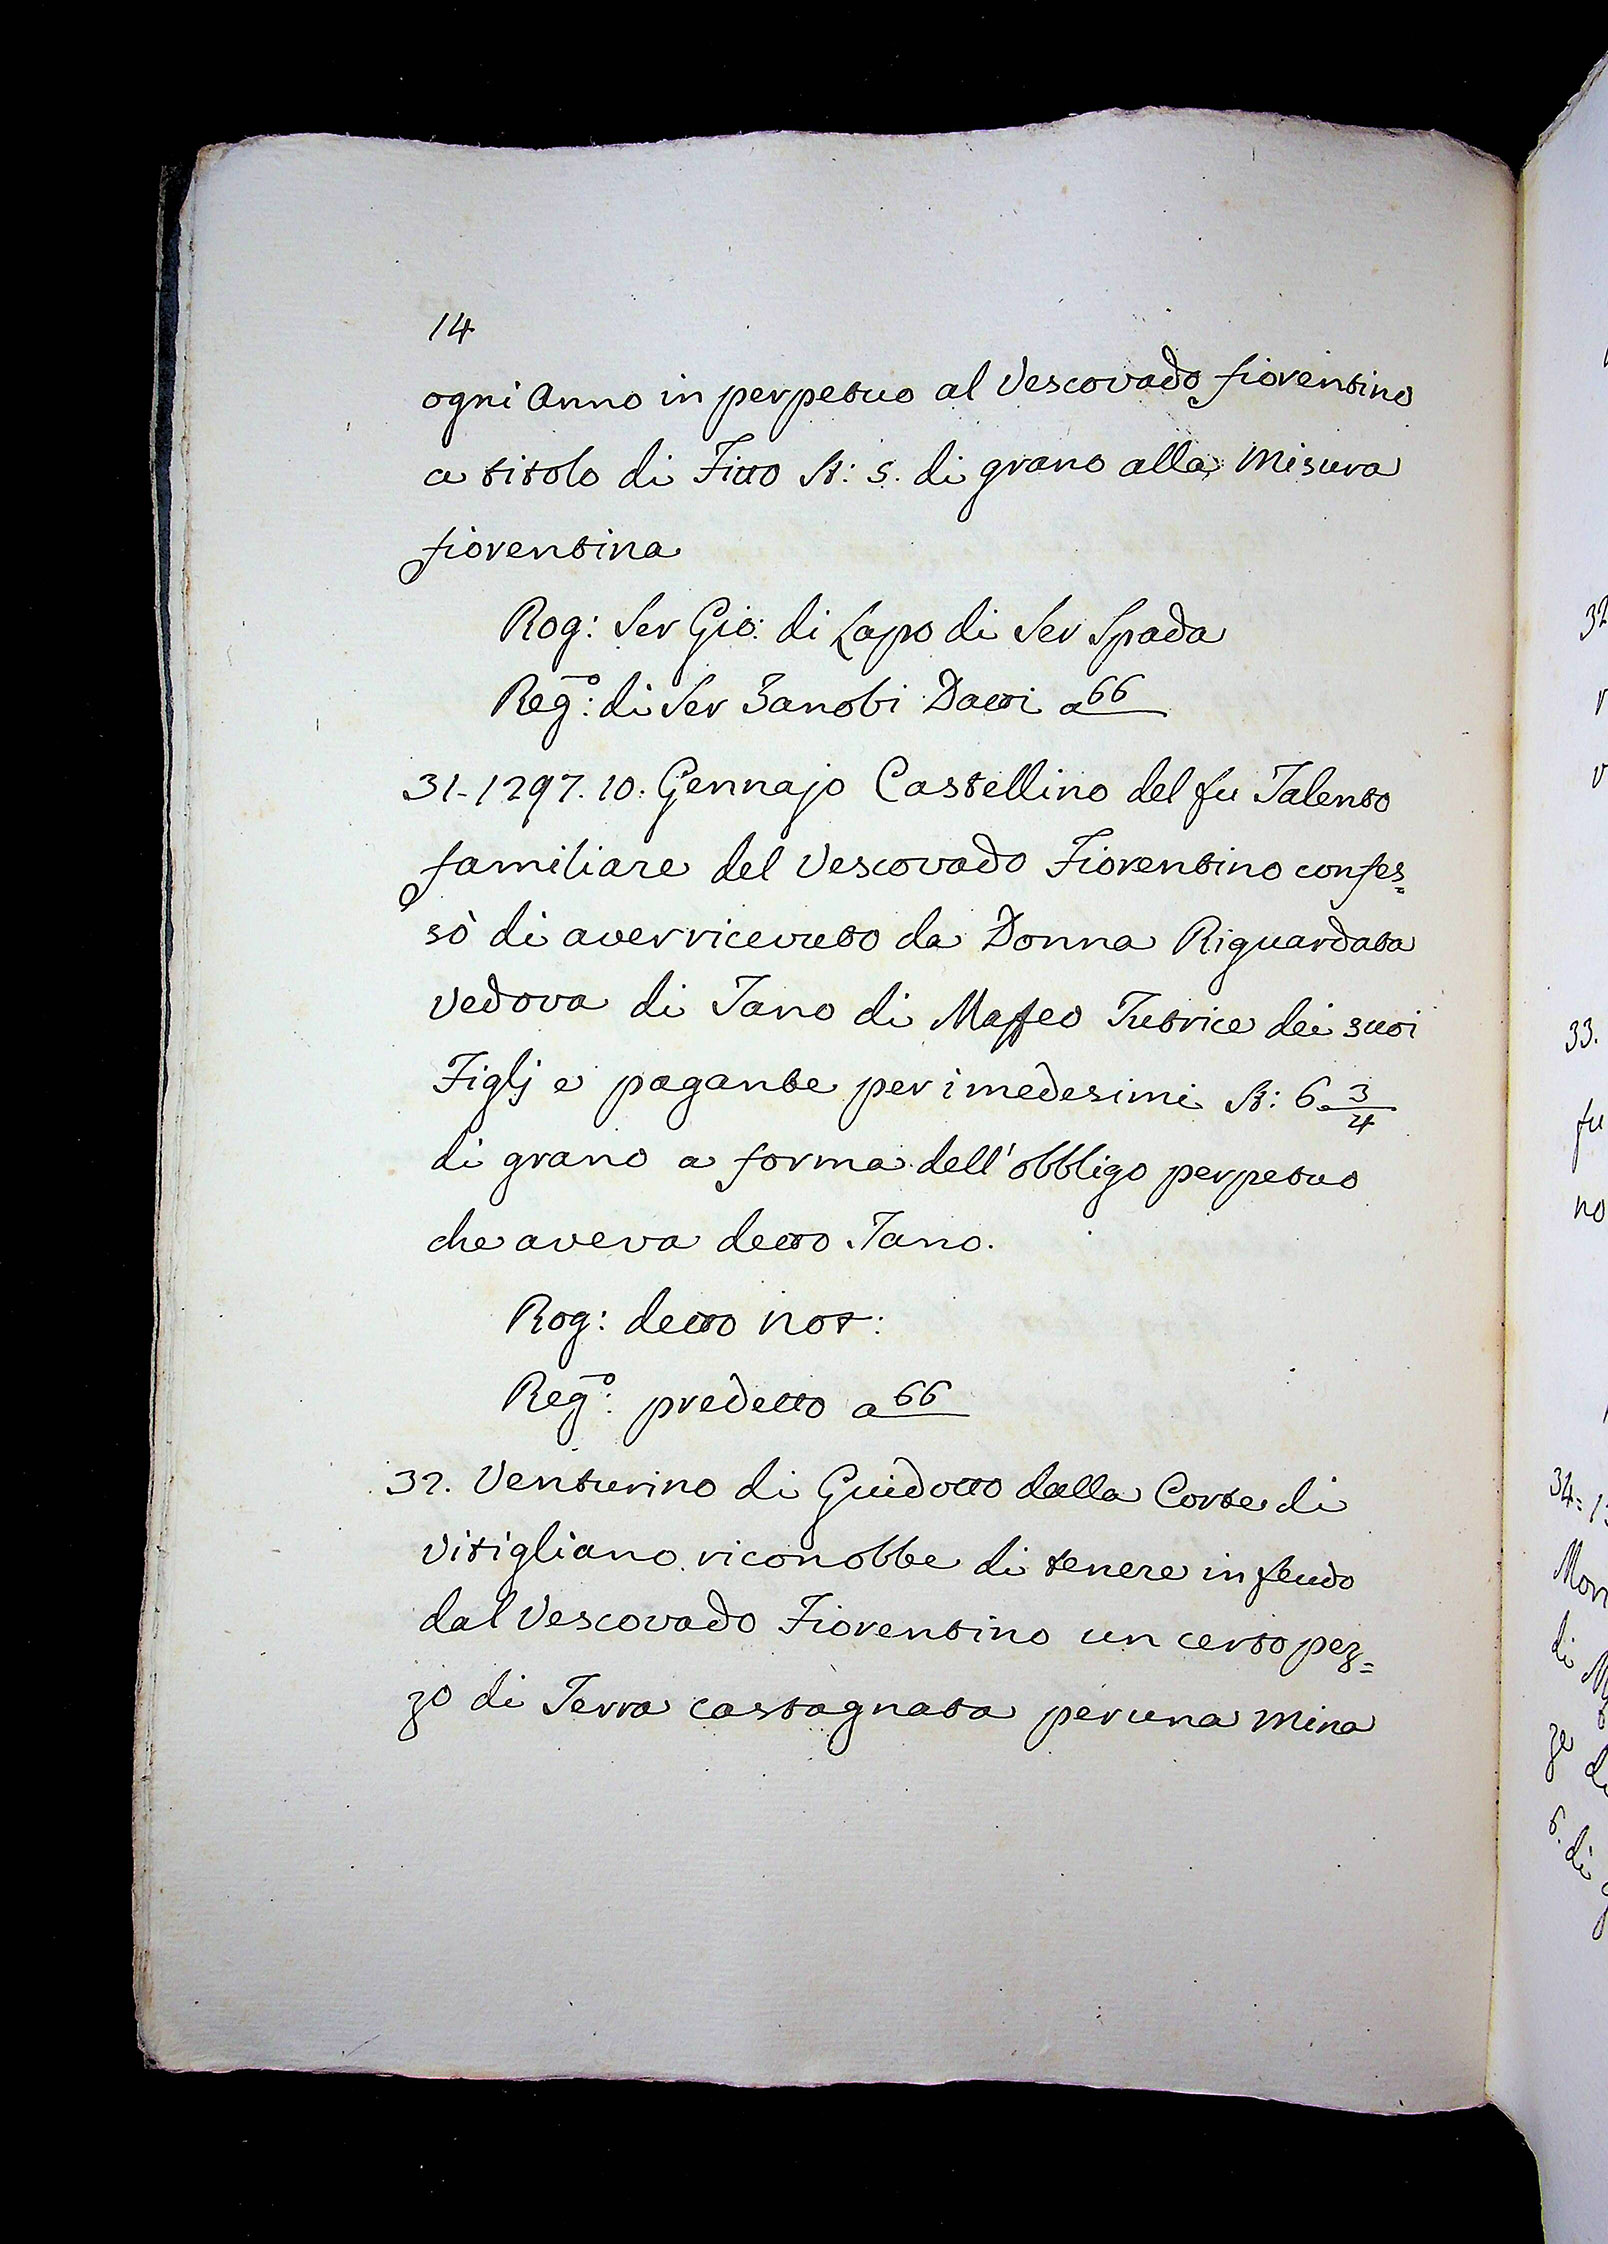 14
ogni Anno in perpetuo al Vescovado fiorentino
a titolo di Fitto St: 5. di grano alla Misura
fiorentina
Rog: Ser Gio: di Lapo di Ser Spada
Reg:º di Ser Zanobi Datti a 66
31-1297. 10. Gennajo Castellino del fu Talento
familiare del Vescovado Fiorentino confes=
sò di aver ricevuto da Donna Riguardata
Vedova di Tano di Maffeo Tutrice dei suoi
Figlj e pagante per i medesimi St: 6 3/4
di grano a forma dell'obbligo perpetuo
che aveva detto Tano.
Rog: detto Not:
Reg:º predetto a 66
32. Venturino di Guidotto dalla Corte di
Vitigliano riconobbe di tenere in feudo
dal Vescovado Fiorentino un certo pez=
zo di Terra castagnata per una Mina
32
33.
fu
no
34=
di
ze
6. di